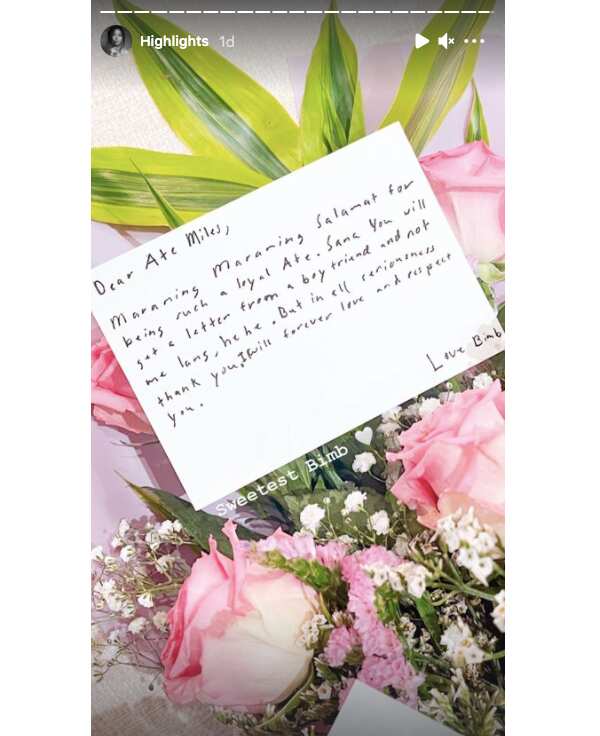 Highlights 1d
Dear Ate Miles,
Maraming Maraming Salamat for
being such a loyal Ate. Sana You will
get a letter from a boyfriend and not
me lang, hehe. But in all seriousness
thank you, I will forever love and respect
you.
Love Bimb
Sweetest Bimb